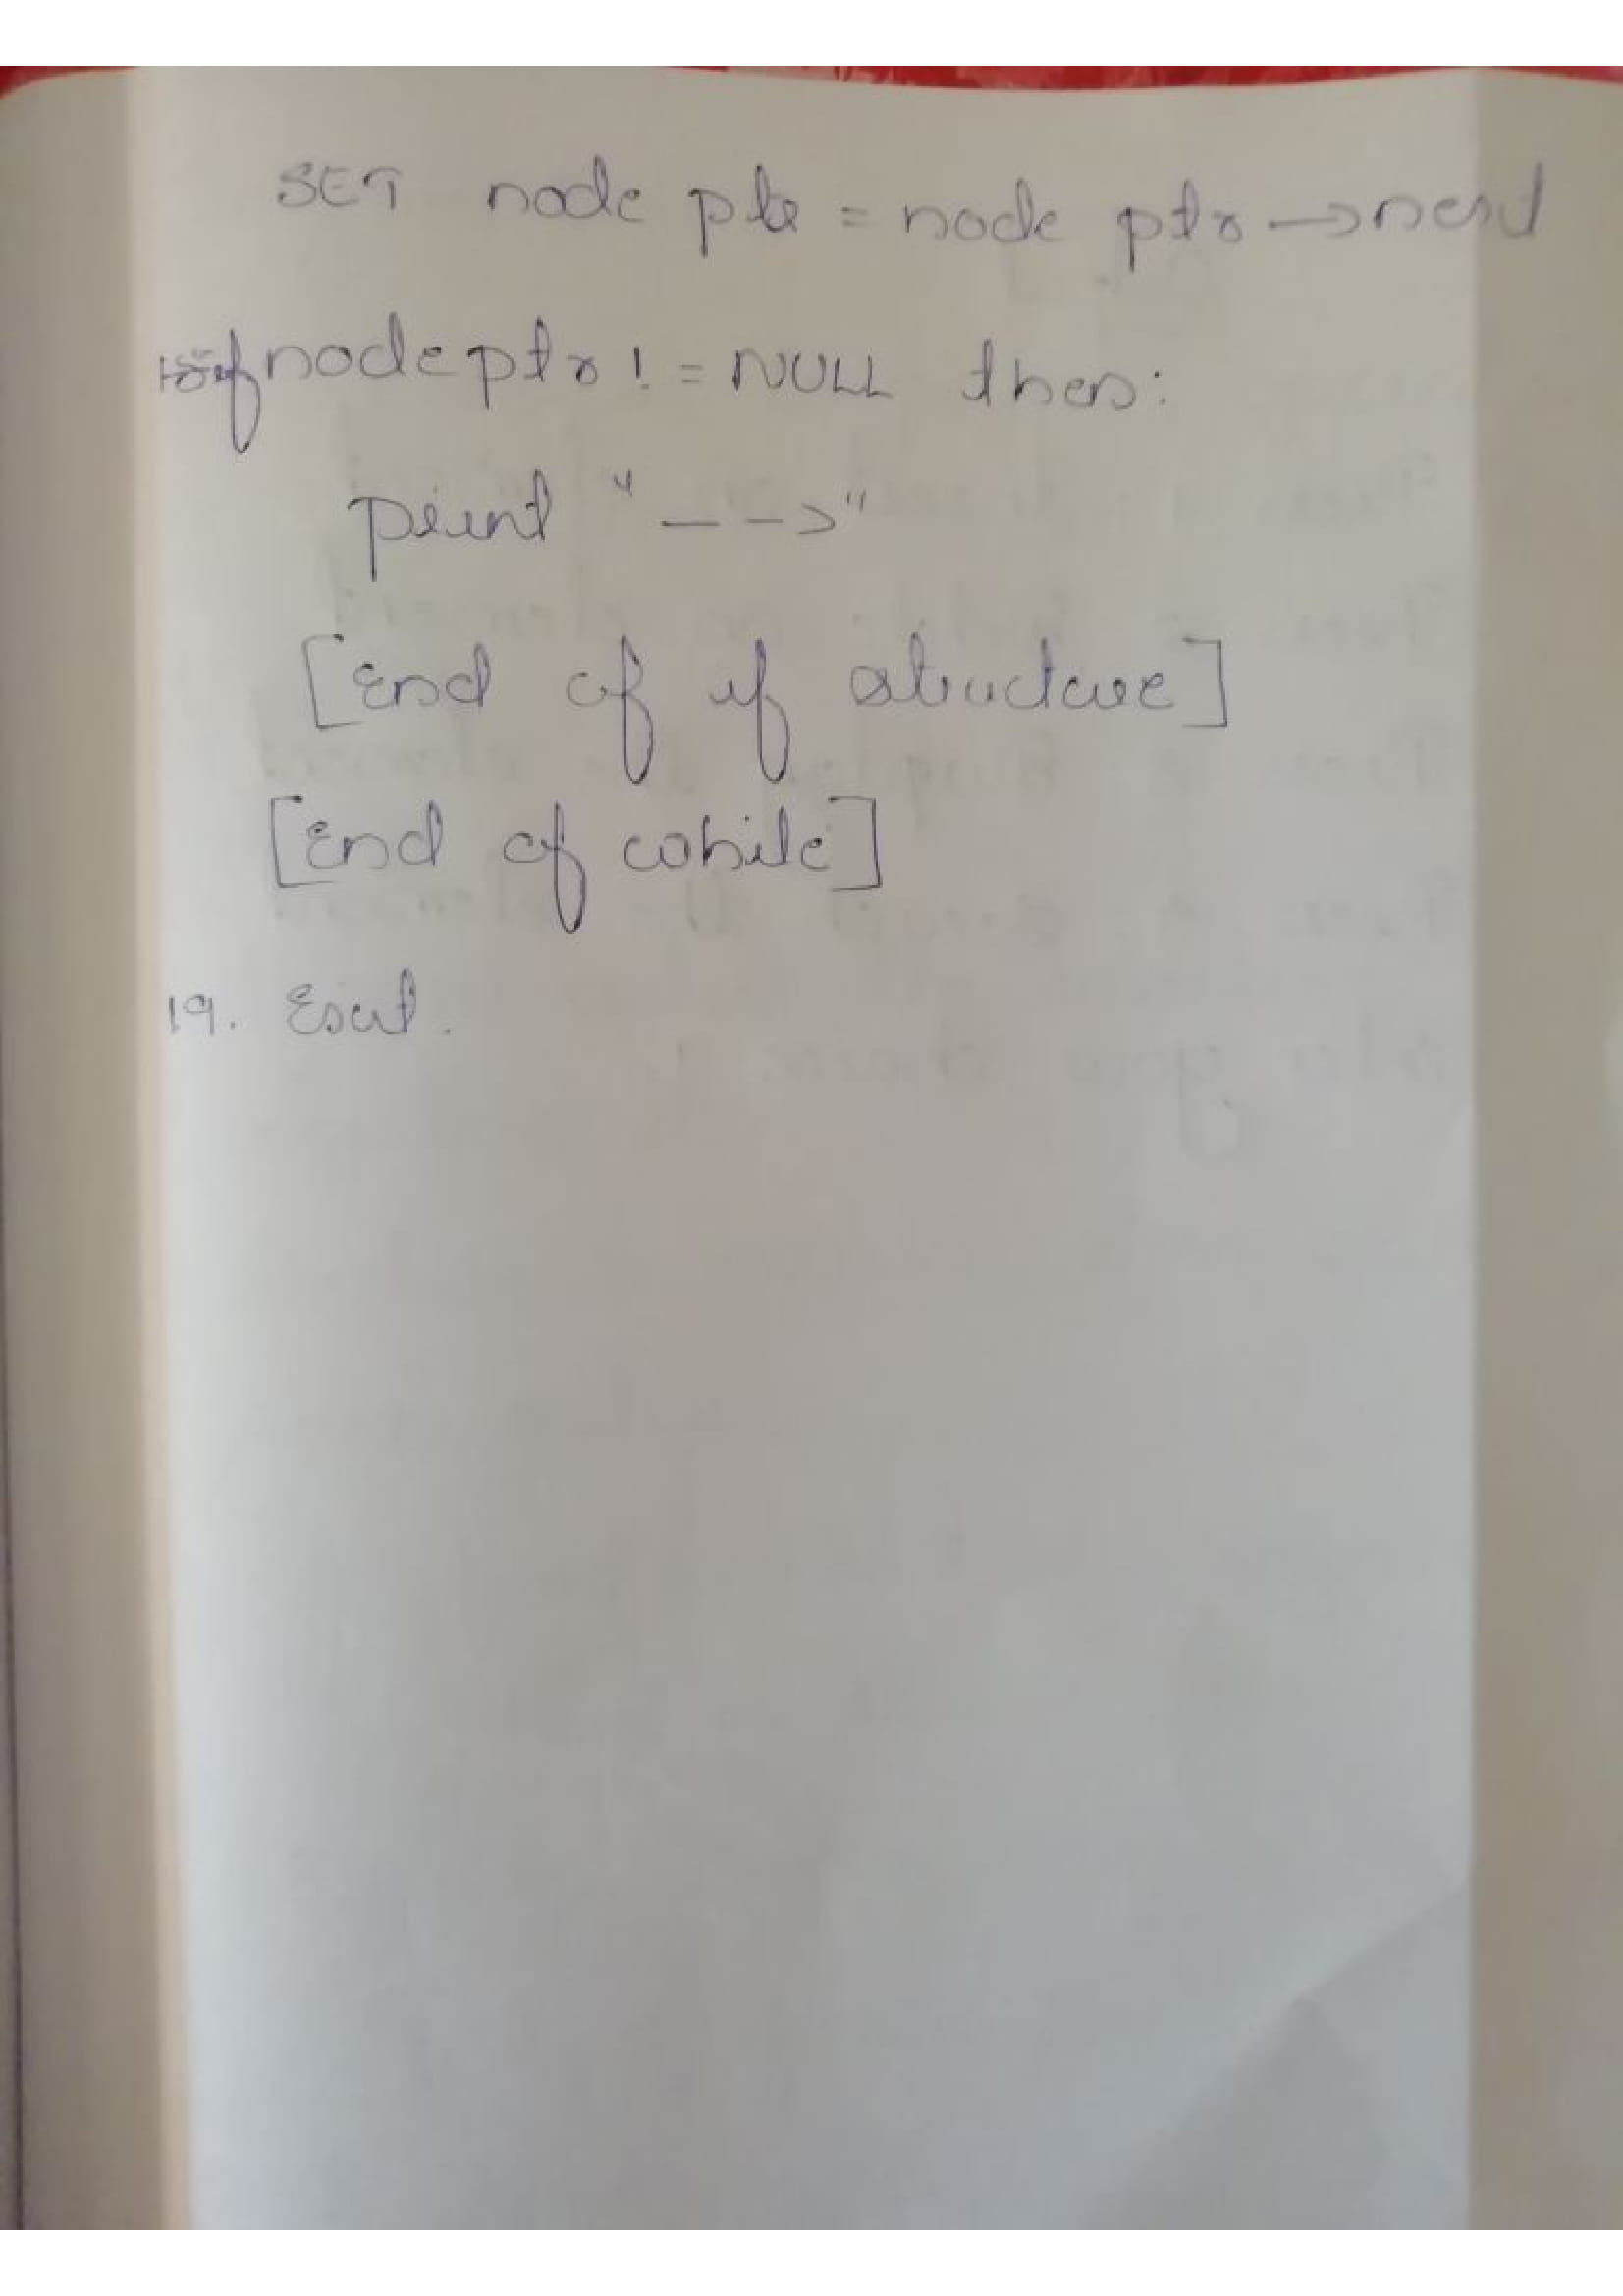 SET node ptr = node ptr → next
if nodeptr != NULL then:
print "--->"
[End of if structure]
[End of while]
19. Exit.